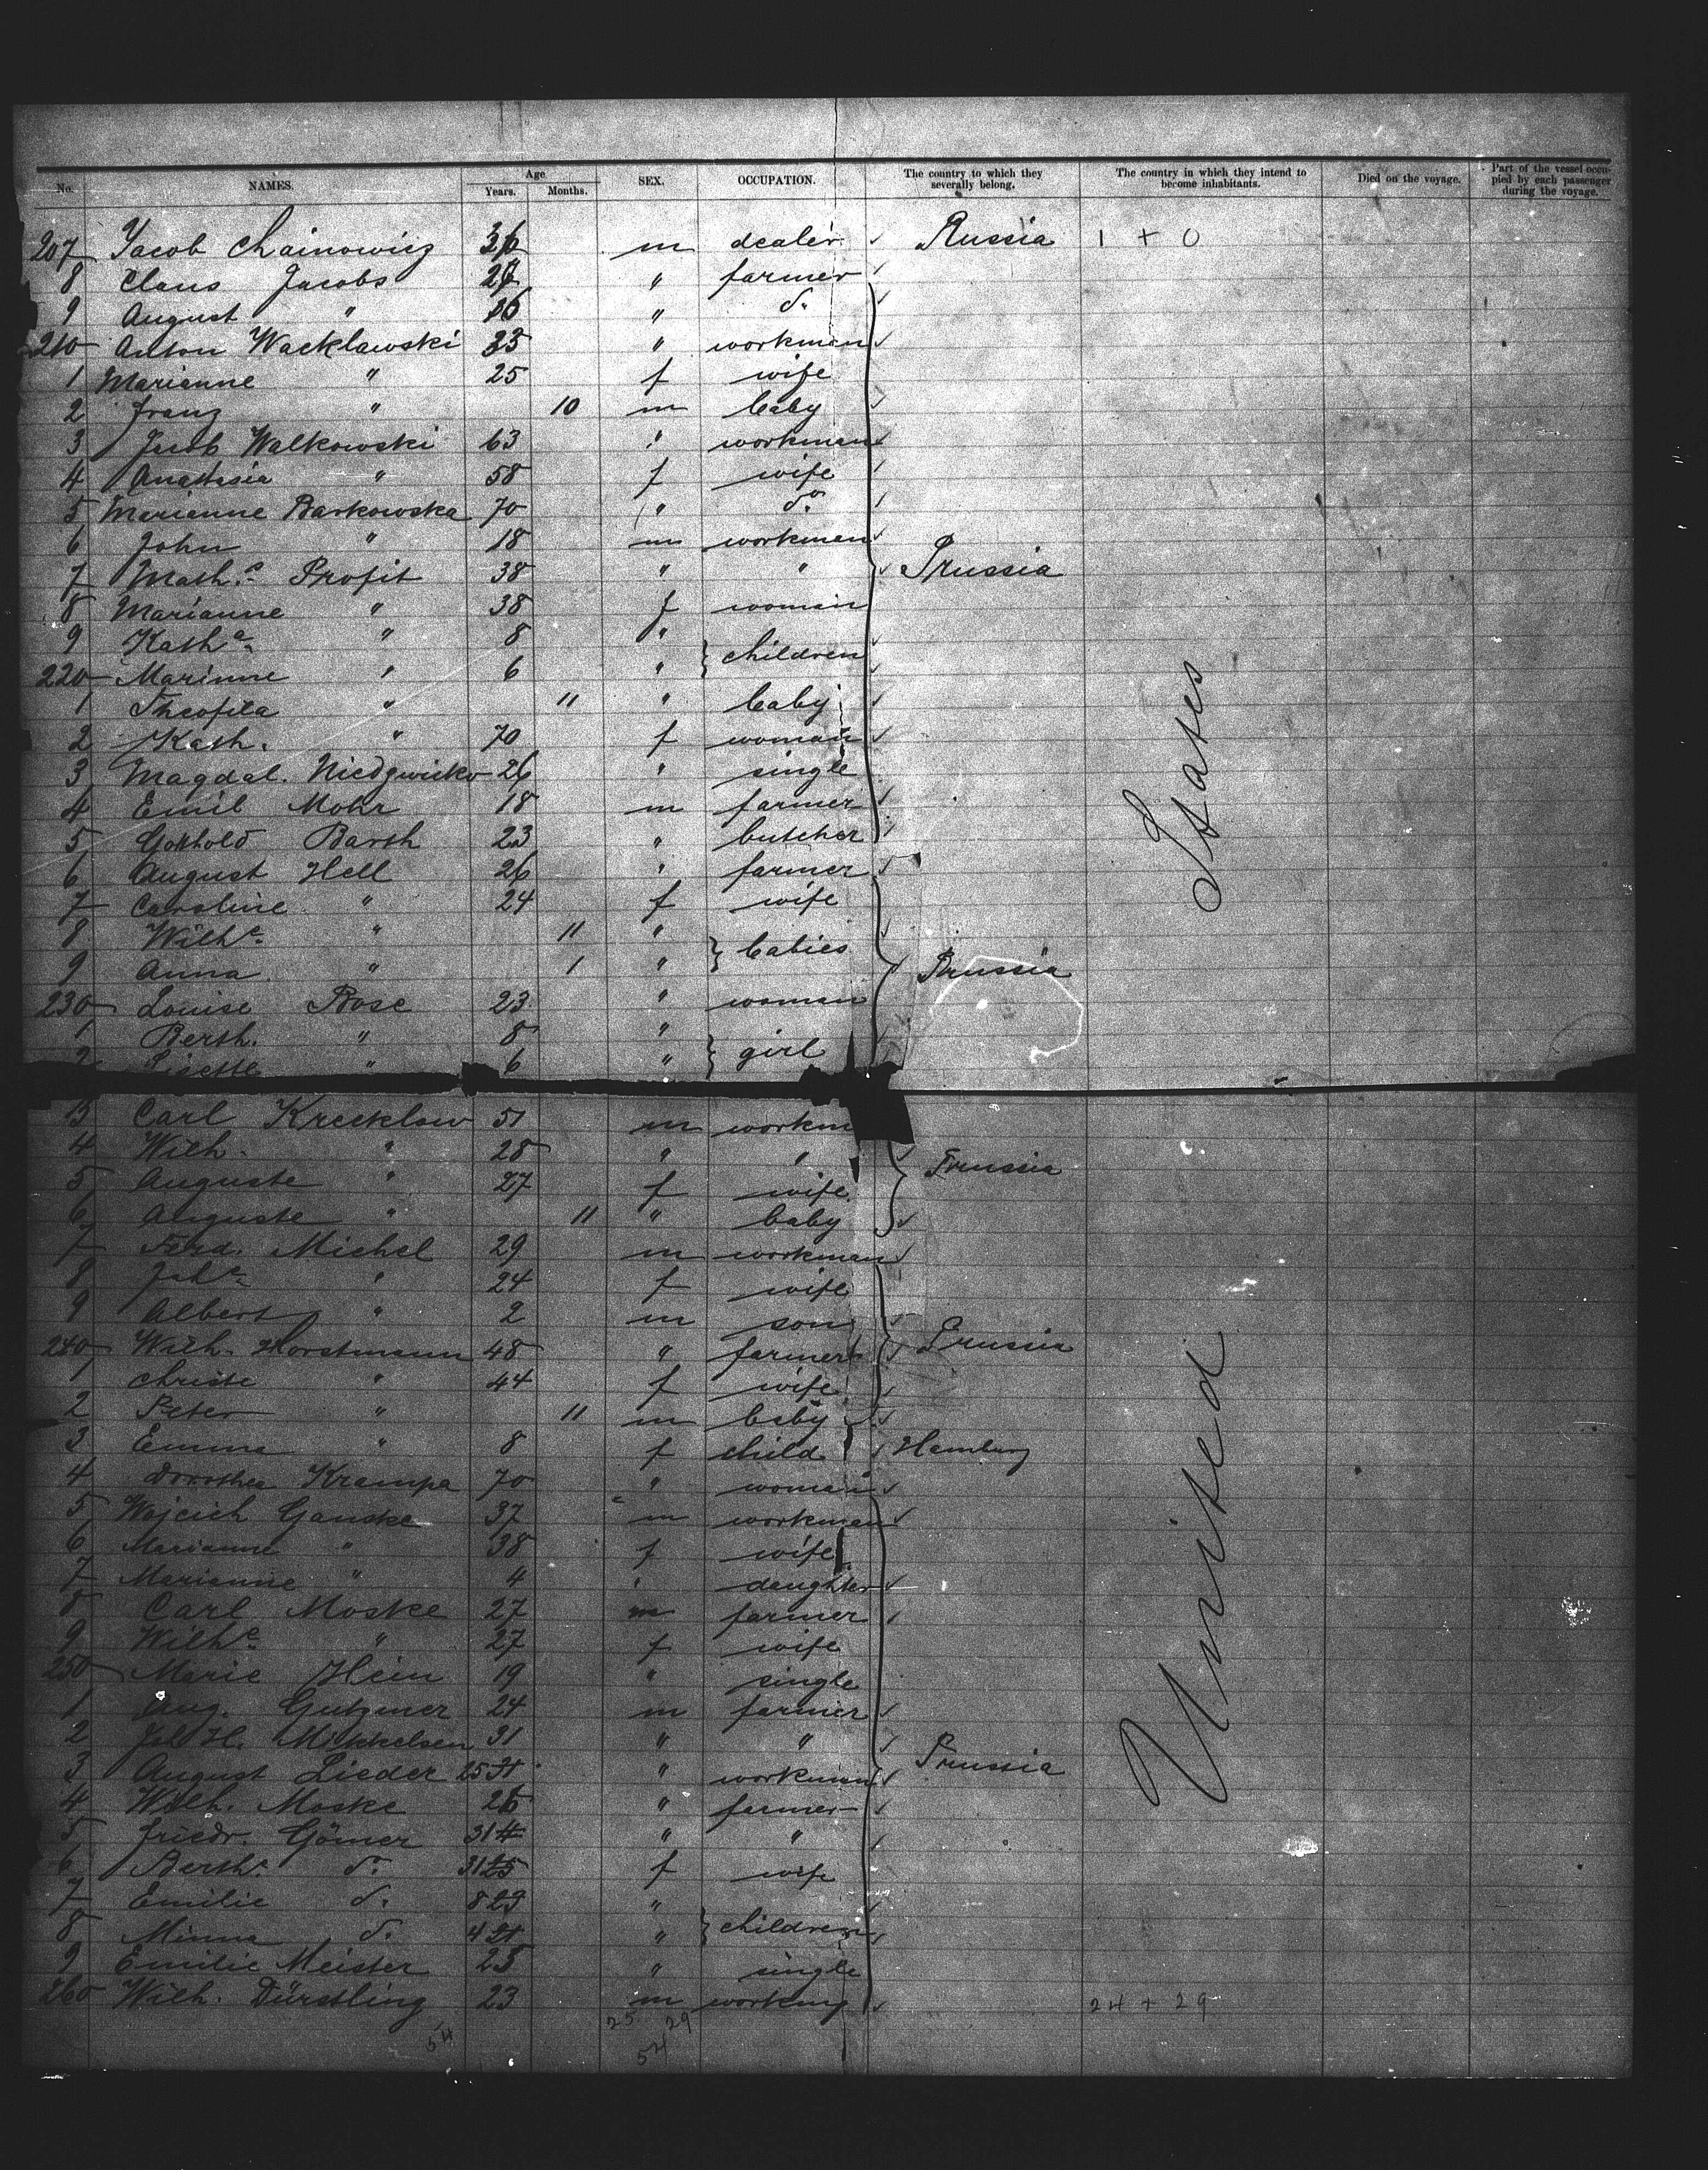 No. NAMES. Age Years. Months. SEX. OCCUPATION. The country to which they severally belong. The country in which they intend to become inhabitants. Died on the voyage. Part of the vessel occupied by each passenger during the voyage.
207 Jacob Chainowicz 36 m dealer Russia 1 + 0
8 Claus Jacobs farmer
9 August " 16 " do
210 Anton Wacklawski 33 " workman
1 Marianne " 25 f wife
2 Franz " 10 m baby
3 Jacob Walkowski 63 " workman
4 Anastasia " 58 f wife
5 Marianne Barkowska 70 " do
6 John " 18 m workman
7 Math.s Profit 38 " " Prussia
8 Marianne " 38 f woman
9 Kath.a " 8 " children
220 Marinne " 6 "
1 Theofila " 11 " baby
2 Kath. " 70 f woman
3 Magdal. 26 " single
4 Emil Mohr 18 m farmer
5 Gothold Barth 23 " butcher
6 August Hell 26 " farmer
7 Caroline " 24 f wife
8 Wilh.e " 11 " babies
9 Anna " 1 " Prussia
230 Louise Bose 23 " woman
1 Berth. " 8 " girl
2 Lisette " 6 "
3 Carl Krecklow 51 m workm
4 Wilh. " 28 " " Prussia
5 Auguste " 27 f wife
6 Auguste " 11 " baby
7 Ferd. Michel 29 m workman
8 Joh.e " 24 f wife
9 Albert " 2 m son
240 Wilh. Horstmann 48 " farmer Prussia
1 Christe " 44 f wife
2 Peter " 11 m baby
3 Emma " 8 f child Hamburg
4 Dorothea Krampa 70 " woman
5 Wojcich Ganske 37 m workman
6 Marianne " 38 f wife
7 Marianne " 4 " daughter
8 Carl Moske 27 m farmer
9 Wilh.e " 27 f wife
250 Marie Hein 19 " single
1 Aug. Gutzmer 24 m farmer
2 Joh H. Mikkelsen 31 " "
3 August Lieder 25 " workman Prussia
4 Wilh. Moske 26 " farmer
5 Friedr. Gömer 31 " "
6 Berth.e do. 31 f wife
7 Emilie do. 8 " children
8 Minna do. 4 "
9 Emilie Meister 25 " single
260 Wilh. Dürstling 23 m working 24 + 29
54 25 29
54
United States